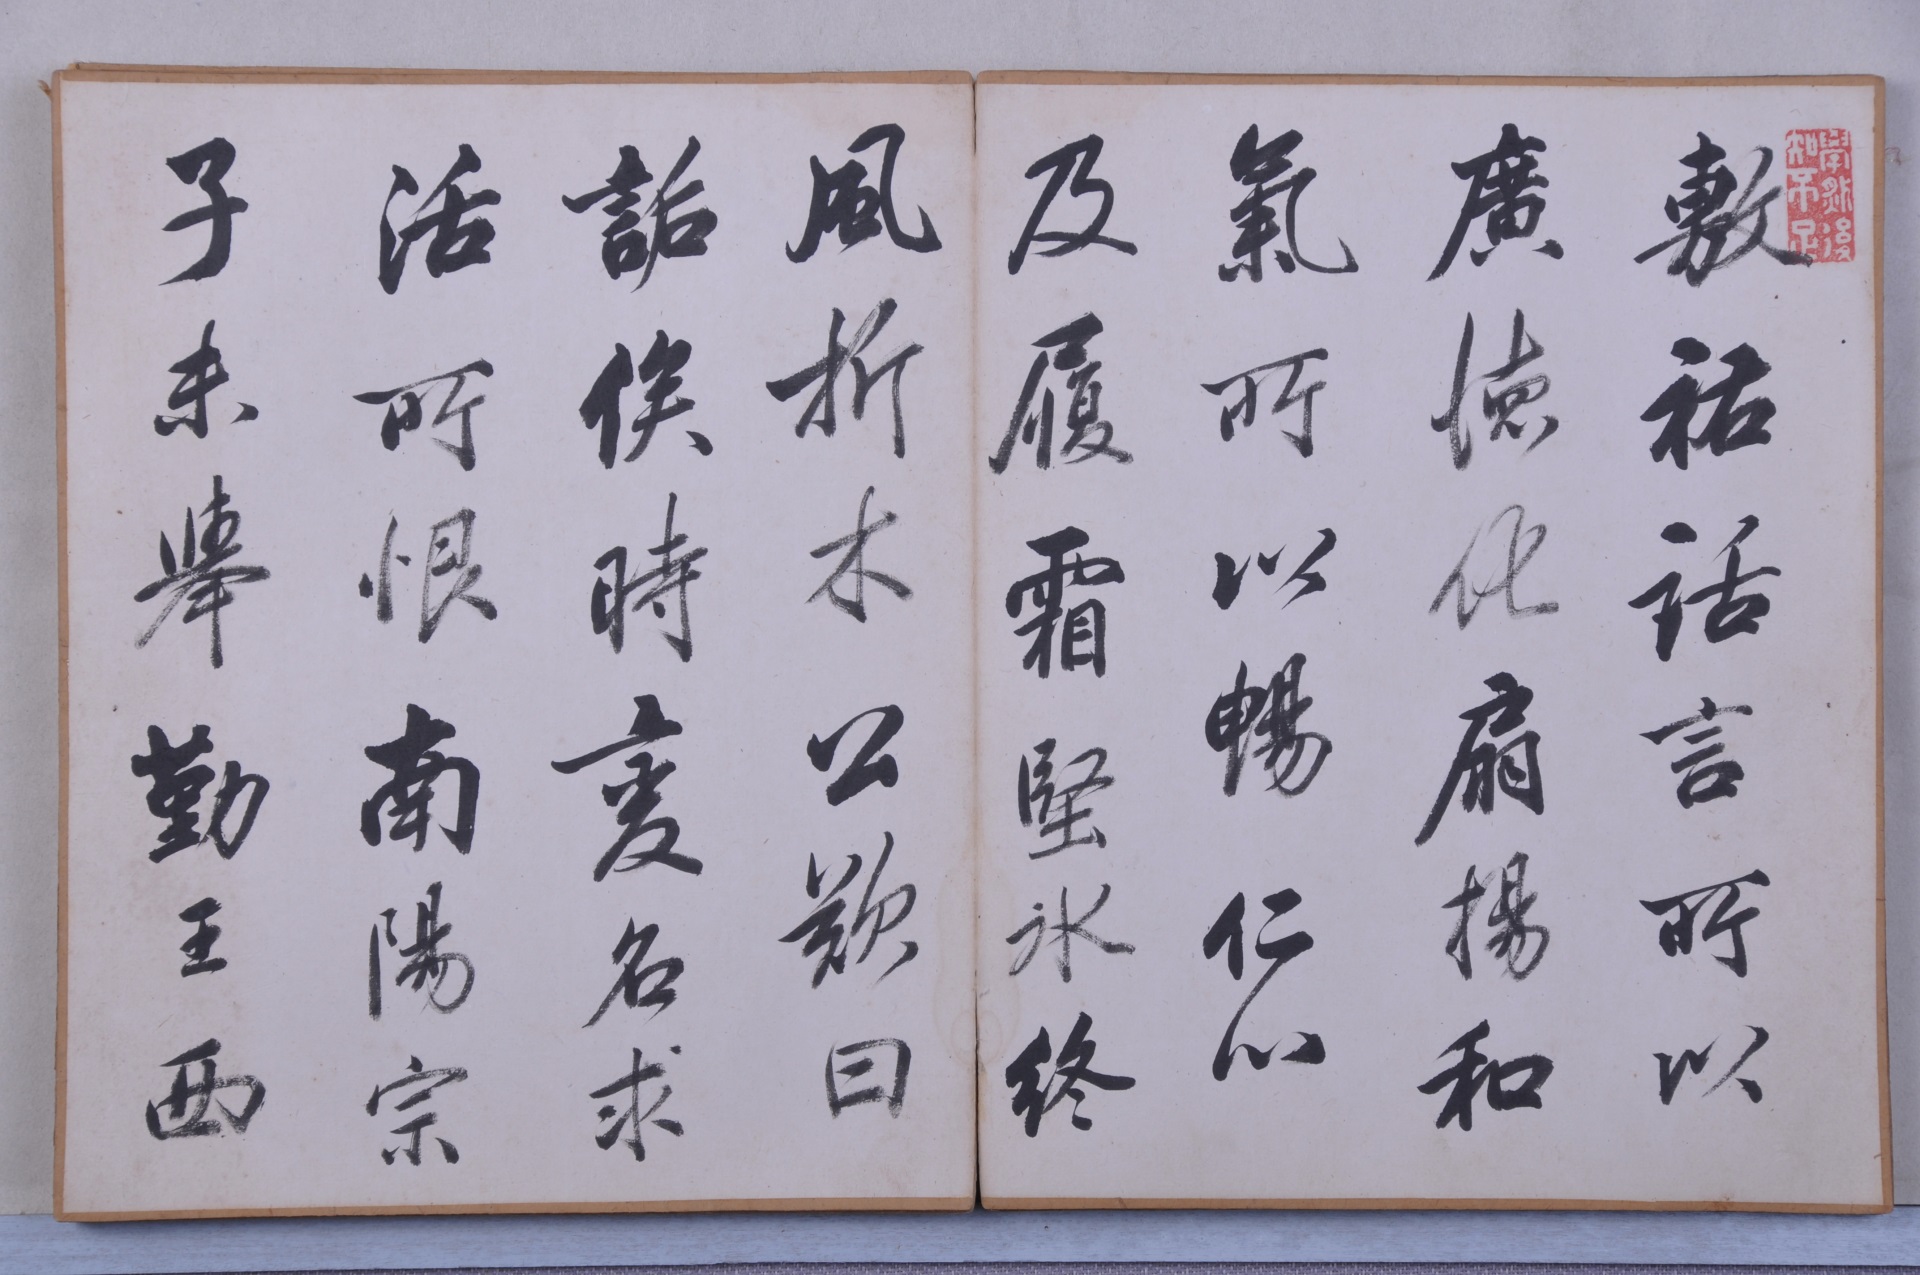 學然後
知不足
敷祐話言所以
廣德化扇揚和
氣所以暢仁心
及履霜堅冰終
風折木公歎曰
詬俟時変名求
活所恨南陽宗
子未舉勤王西